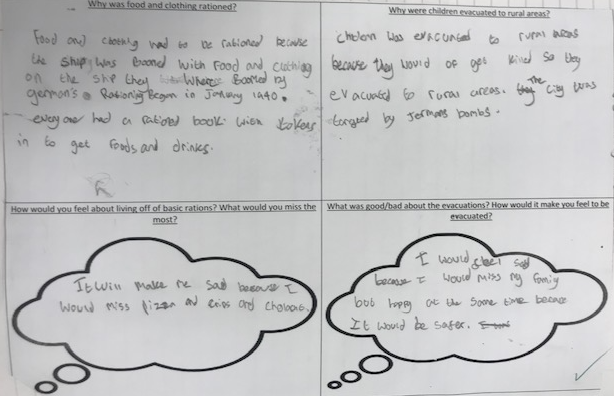 Why was food and clothing rationed?
Food and clothing had to be rationed because
the ship was Boomed with Food and clothing
on the ship they Where Boomed by
german's. Rationing Began in January 1940.
everyone had a rationed book with tokens
in to get foods and drinks.
Why were children evacuated to rural areas?
was evacuated to rural areas
because they would of get killed so they
evacuated to rural areas. The city was
targed by Jermans bombs.
How would you feel about living off of basic rations? What would you miss the
most?
It will make me sad because I
would miss Pizza and and
What was good/bad about the evacuations? How would it make you feel to be
evacuated?
I would feel sad
because I would miss my family
but happy at the same time because
It would be safer.